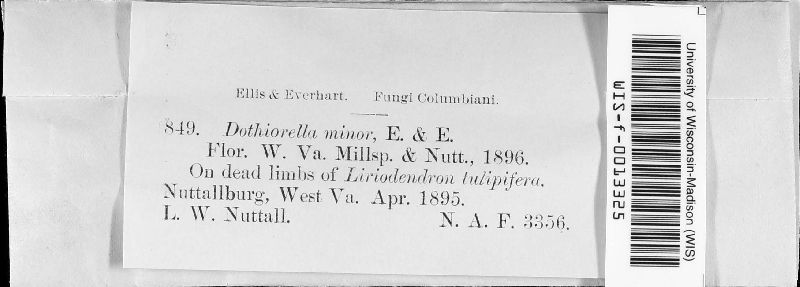 Ellis & Everhart. Fungi Columbiani.
849. Dothiorella minor, E. & E.
Flor. W. Va. Millsp. & Nutt., 1896.
On dead limbs of Liriodendron tulipifera.
Nuttallburg, West Va. Apr. 1895.
L. W. Nuttall. N. A. F. 3356.
WIS-f-0013325
University of Wisconsin-Madison (WIS)